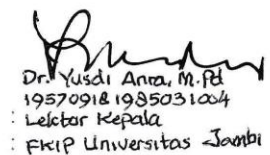 Dr. Yusdi Anra, M.Pd
19570918 198503 1004
: Lektor Kepala
: FKIP Universitas Jambi